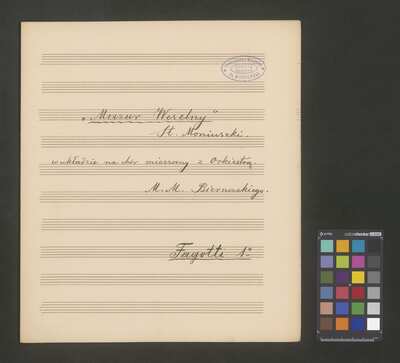 „Mazur Weselny"
St. Moniuszki.
w układzie na chór mieszany z Orkiestrą.
M. M. Biernackiego.
Fagotti 1º